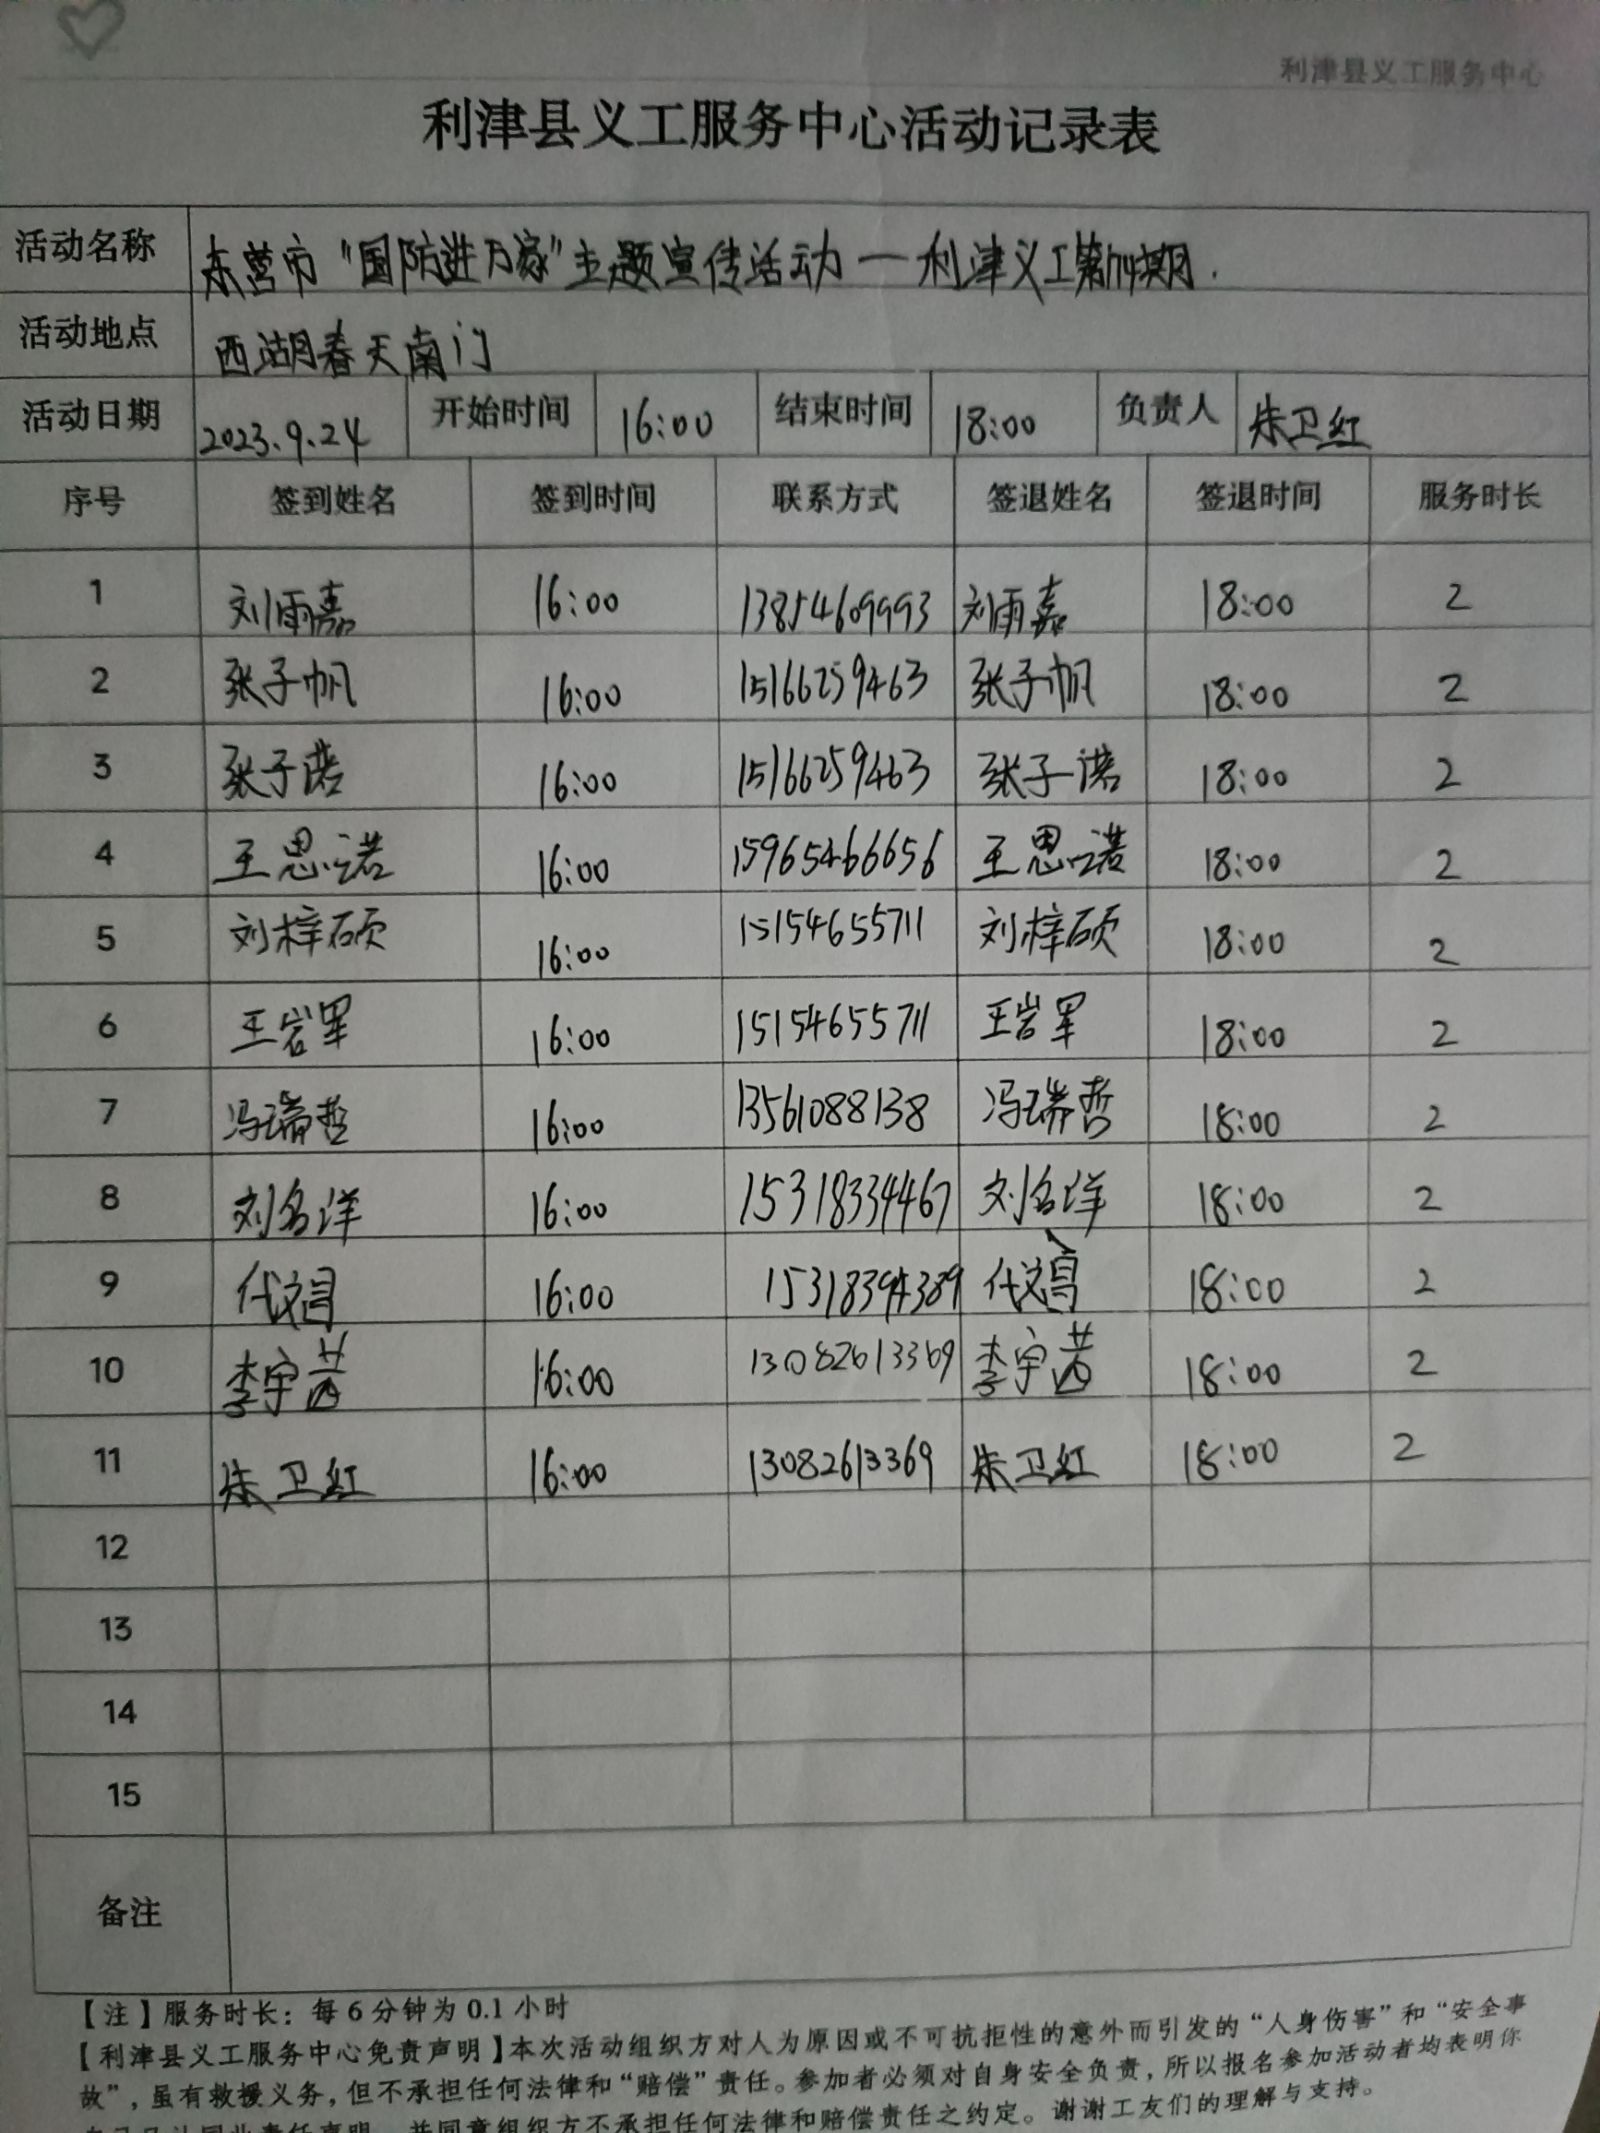 利津县义工服务中心
利津县义工服务中心活动记录表
活动名称 东营市“国防进万家”主题宣传活动—利津义工第 期.
活动地点 西湖春天南门
活动日期 2023.9.24 开始时间 16:00 结束时间 18:00 负责人 朱卫红
序号 签到姓名 签到时间 联系方式 签退姓名 签退时间 服务时长
1 刘雨嘉 16:00 13854609993 刘雨嘉 18:00 2
2 张子帆 16:00 15166259463 张子帆 18:00 2
3 张子诺 16:00 15166259463 张子诺 18:00 2
4 王思诺 16:00 15965466656 王思诺 18:00 2
5 刘梓硕 16:00 15154655711 刘梓硕 18:00 2
6 王岩军 16:00 15154655711 王岩军 18:00 2
7 冯瑞哲 16:00 13561088138 冯瑞哲 18:00 2
8 刘名洋 16:00 15318334467 刘名洋 18:00 2
9 代文昌 16:00 15318394389 代文昌 18:00 2
10 李宇茜 16:00 13082613369 李宇茜 18:00 2
11 朱卫红 16:00 13082613369 朱卫红 18:00 2
12
13
14
15
备注
【注】服务时长：每6分钟为0.1小时
【利津县义工服务中心免责声明】本次活动组织方对人为原因或不可抗拒性的意外而引发的“人身伤害”和“安全事
故”，虽有救援义务，但不承担任何法律和“赔偿”责任。参加者必须对自身安全负责，所以报名参加活动者均表明你
并同意组织方不承担任何法律和赔偿责任之约定。谢谢工友们的理解与支持。